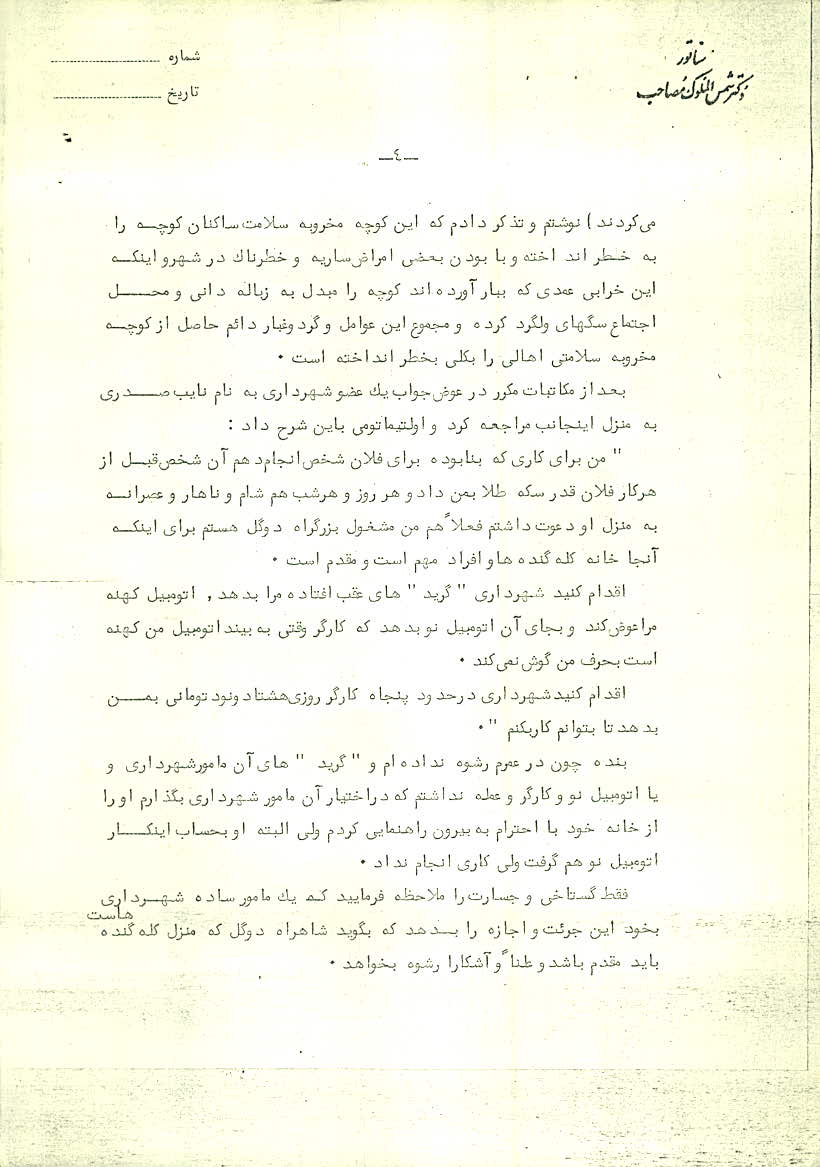 سناتور
دکتر شمس الملوک مصاحب
شماره
تاریخ
ـ٤ـ
می‌کردند) نوشتم و تذکر دادم که این کوچه مخروبه سلامت ساکنان کوچـه را
به خـطر انداخته و با بودن بعضی امراض ساریه و خطرناك در شهر و اینکـه
این خرابی عمدی که ببار آورده‌اند کوچه را مبدل به زباله دانی و محـــل
اجتماع سگهای ولگرد کرده و مجموع این عوامل و گرد وغبار دائم حاصل از کوچـه
مخروبه سلامتی اهالی را بکلی بخطر انداخته است ٠
بعد از مکاتبات مکرر در عوض جواب یك عضو شهرداری به نام نایب صــدری
به منزل اینجانب مراجعه کرد و اولتیماتومی باین شرح داد :
" من برای کاری که بنابوده برای فلان شخص انجام دهم آن شخص قبـل از
هرکار فلان قدر سکه طلا بمن داد و هر روز و هرشب هم شام و ناهار و عصرانـه
به منزل او دعوت داشتم فعلاً هم من مشغول بزرگراه دوگل هستم برای اینکـه
آنجا خانه کله گنده ها و افراد مهم است و مقدم است ٠
اقدام کنید شهرداری "گرید" های عقب افتاده مرا بدهد , اتومبیل کهنه
مرا عوض کند و بجای آن اتومبیل نو بدهد که کارگر وقتی به بیند اتومبیل من کهنه
است بحرف من گوش نمی‌کند ٠
اقدام کنید شهرداری درحدود پنجاه کارگر روزی هشتاد ونود تومانی بمــن
بدهد تا بتوانم کاربکنم " ٠
بنده چون در عمرم رشوه نداده ام و "گرید" های آن مامور شهرداری و
یا اتومبیل نو و کارگر و عمله نداشتم که دراختیار آن مامور شهرداری بگذارم او را
از خانه خود با احترام به بیرون راهنمایی کردم ولی البته او بحساب اینکــار
اتومبیل نو هم گرفت ولی کاری انجام نداد ٠
فقط گستاخی و جسارت را ملاحظه فرمایید کـه یك مامور ساده شهـرداری
بخود این جرئت و اجازه را بــدهد که بگوید شاهراه دوگل که منزل کله گنده هاست
باید مقدم باشد و علناً و آشکارا رشوه بخواهد ٠